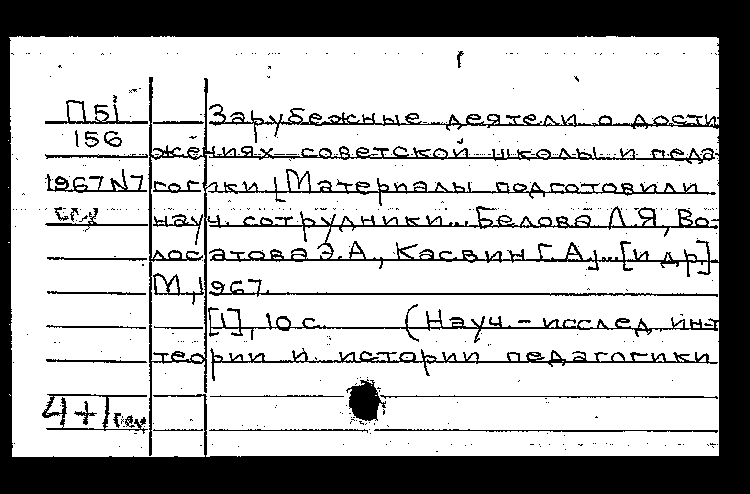 П51 Зарубежные деятели о дости
156 жениях советской школы и педа-
1967 N7 гогики. [Материалы подготовили
науч. сотрудники... Белова Л.Я, Во-
лосатова Э.А., Касвин Г.А.]...[и др.]
М., 1967.
[1], 10 с. (Науч.-исслед инт
теории и истории педагогики
4+1